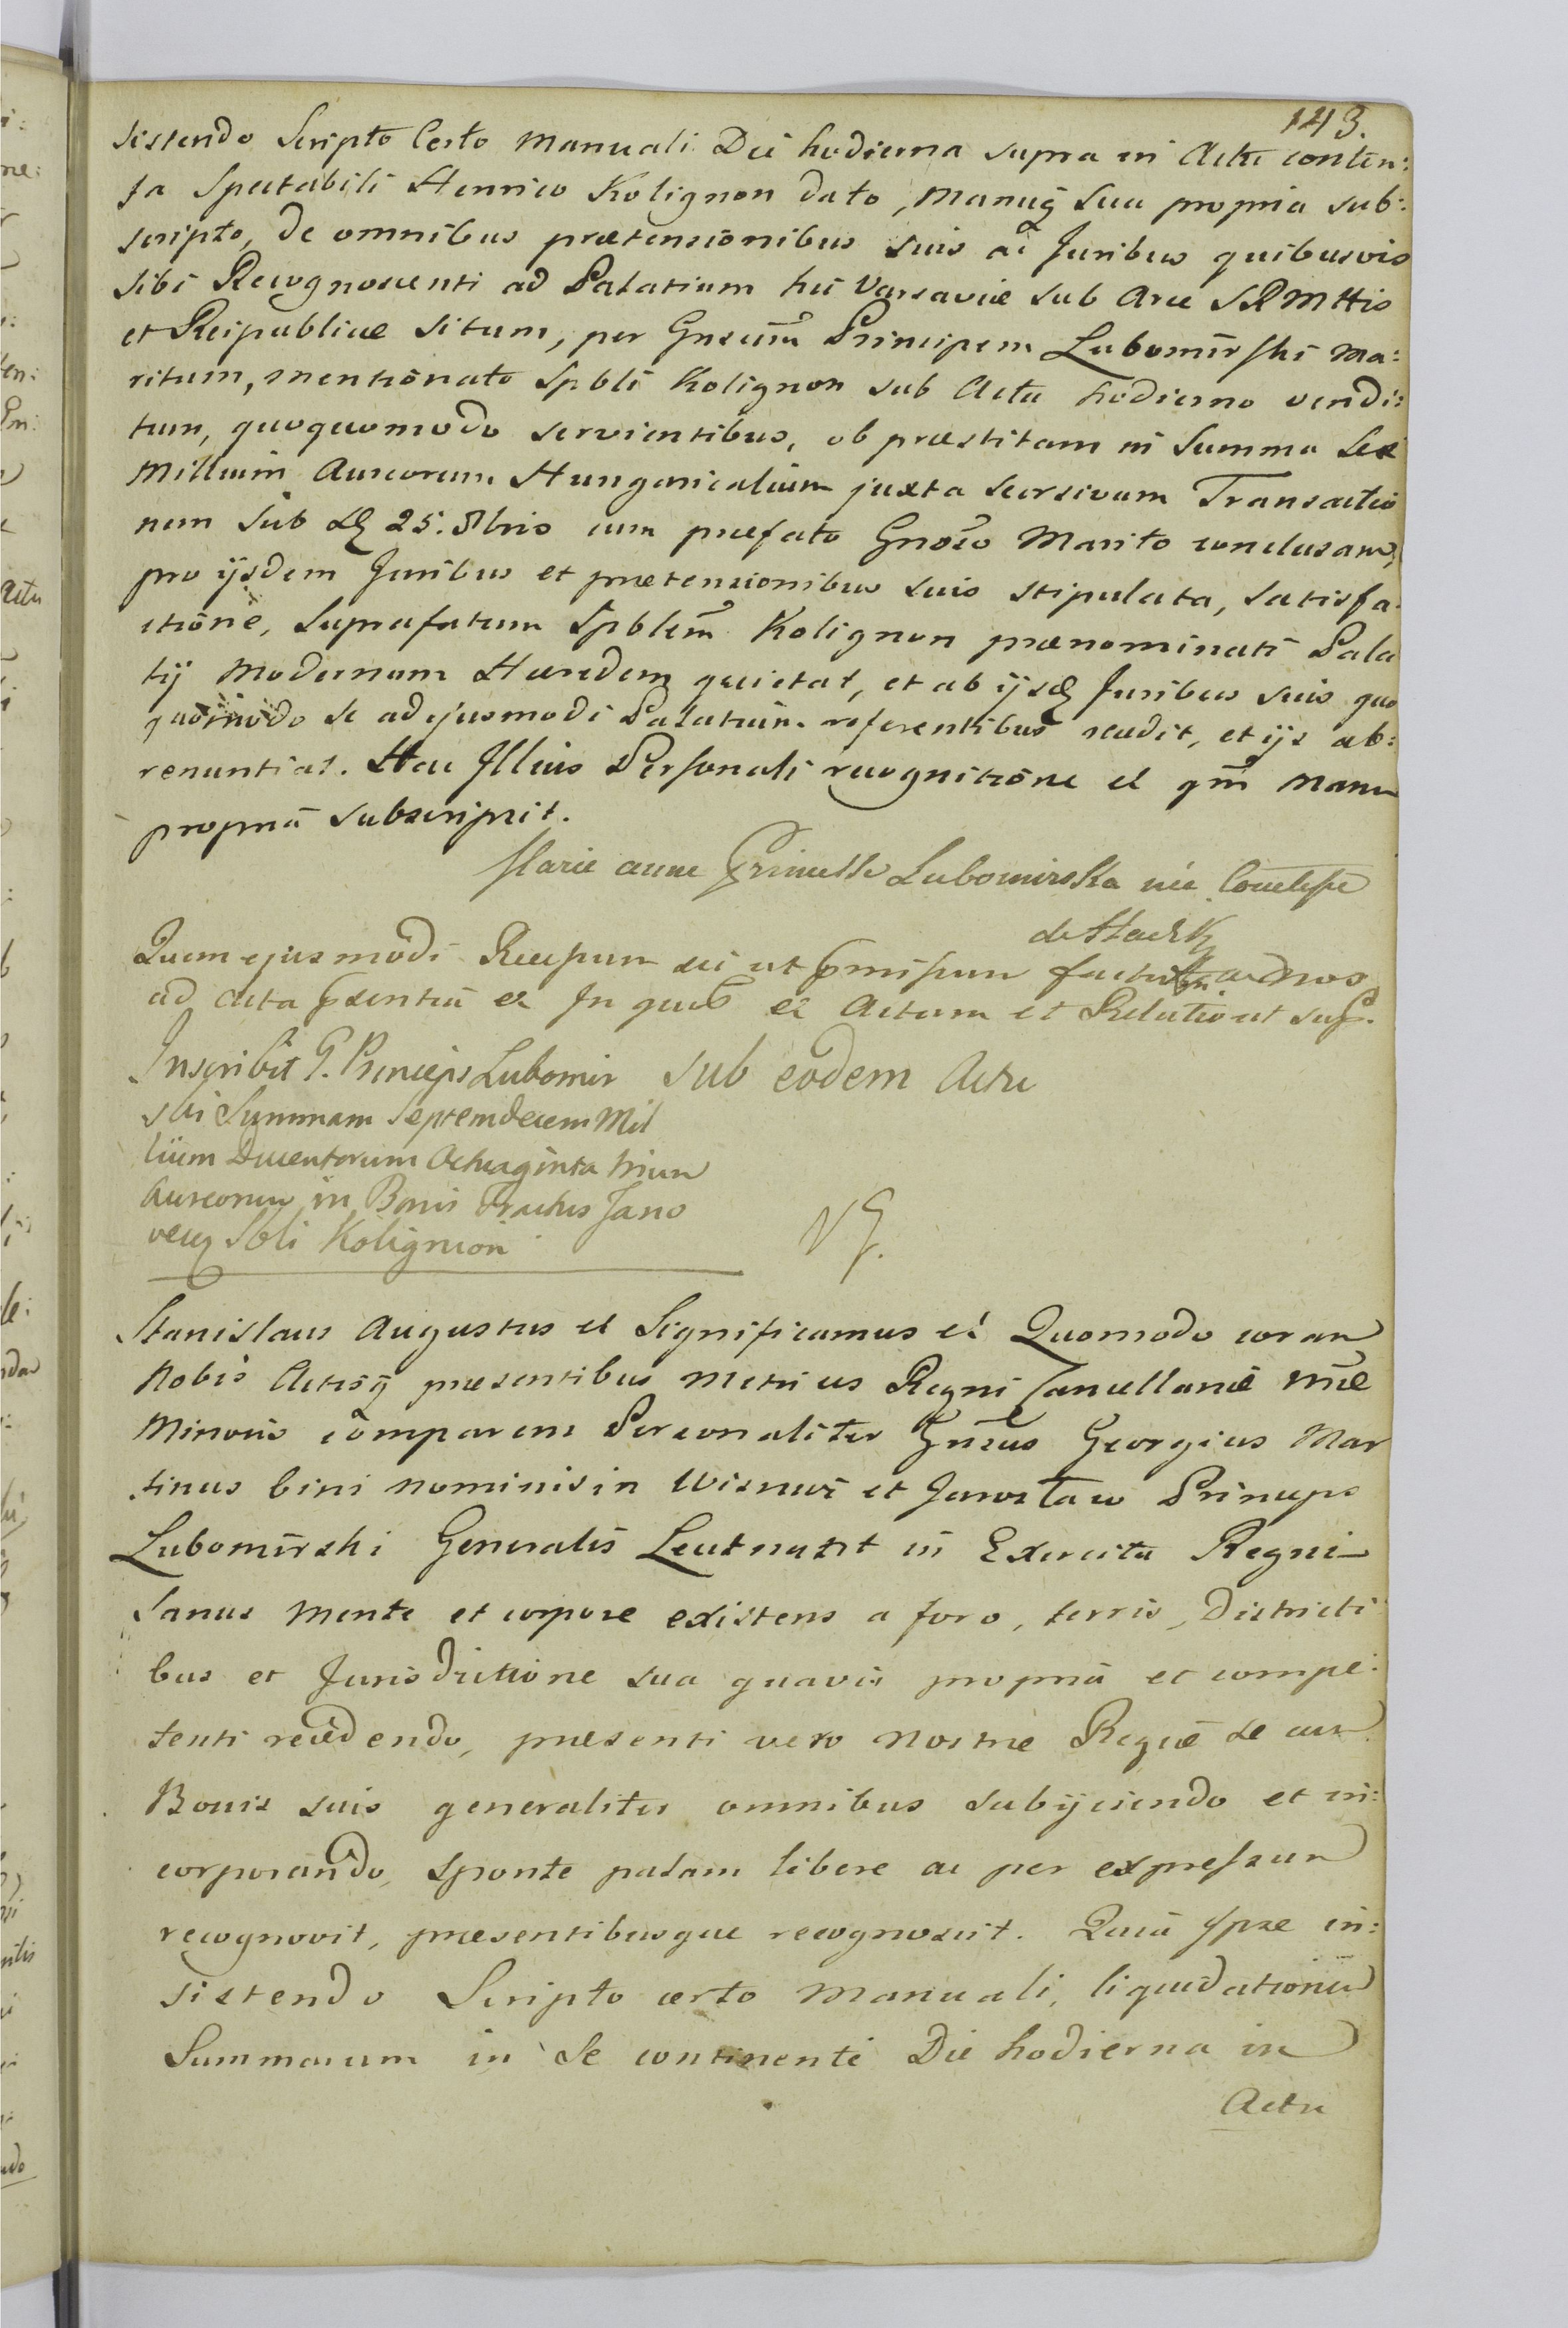 143.
sistendo Scripto Certo Manuali Die hodierna supra in Actu conten:
ta Spectabili Henrico Kolignon dato, Manuq sua propria sub:
scripto, de omnibus prætensionibus suis ac Juribus quibusvis
sibi Recognoscenti ad Palatium hic Varsaviæ sub Arce SRMttis
et Reipublicæ situm, per Gnsum Principem Lubomirski Ma:
ritum, mentionato Spbli Kolignon sub Actu hodierno vendi:
tum, quoquomodo servientibus, ob præstitam in Summa Sex
Millium Aureorum Hungaricalium juxta seorsivam Transactio
nem sub 25. 8bris cum præfato Gnoso Marito conclusam,
pro ijsdem Juribus et prætensionibus suis stipulata, satisfa
ctione, Suprafatum Spblem Kolignon prænominati Pala
tij Modernum Hæredem quietat, et ab ijsq Juribus suis quo
quomodo se ad ejusmodi Palatium referentibus recedit, et ijs ab:
renuntiat. Hac Illius Personali recognitione et qm Manu
propria subscripsit.
Marie anne Princesse Lubomirska née Comtesse
de Hadik
Quem ejusmodi Recessum sic ut præmissum factum ad nos
ad Acta præsentia et In quor et Actum et Relatio ut sup.
Inscribit G. Princeps Lubomir
ski Summam Septemdecem Mil
lium Ducentorum Octuaginta trium
Aureorum in Bonis Tractus Jano
veciq Sbli Kolignion
sub eodem Actu
NG.
Stanislaus Augustus et Significamus et Quomodo coram
Nobis Actisq præsentibus Metrices Regni Cancellariæ nræ
Minoris comparens Personaliter Gnsus Georgius Mar
tinus bini nominis in Wisnicz et Jarosław Princeps
Lubomirski Generalis Leutnatnt in Exercitu Regni
Sanus Mente et corpore existens a foro, terris, Districti
bus et Jurisdictione sua quavis propria et compe:
tenti recedendo, præsenti vero Nostræ Regiæ se cum
Bonis suis generaliter omnibus subijciendo et in:
corporando, sponte palam libere ac per expressum
recognovit, præsentibusque recognoscit. Quia Ipse in:
sistendo Scripto certo Manuali, liquidationem
Summarum in Se continenti Die hodierna in
Actu